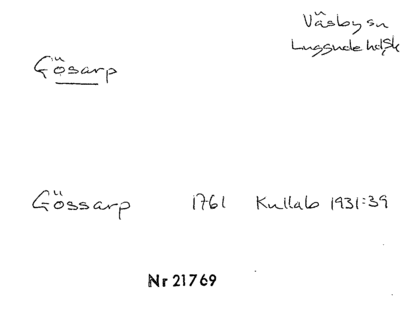 Väsby sn
Luggude hdSk
Gösarp
Gössarp 1761 Kullab 1931:39
Nr 21769